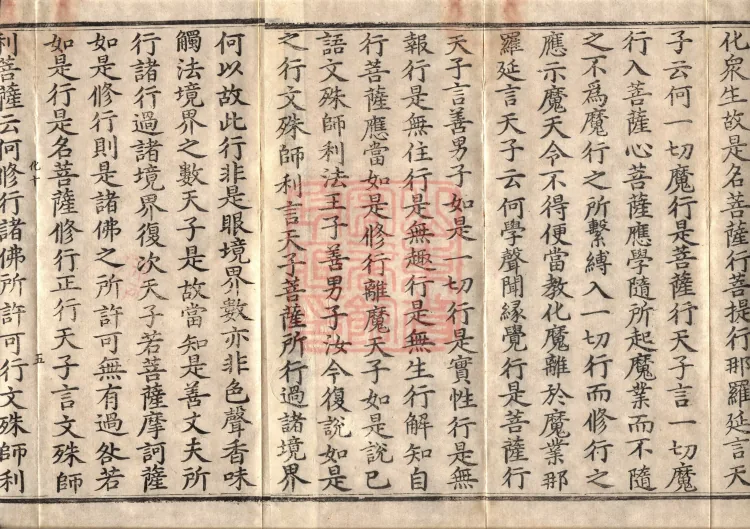 化衆生故是名菩薩行菩提行那羅延言天
子云何一切魔行是菩薩行天子言一切魔
行入菩薩心菩薩應學隨所起魔業而不隨
之不為魔行之所繫縛入一切行而修行之
應示魔天令不得便當教化魔離於魔業那
羅延言天子云何學聲聞緣覺行是菩薩行
天子言善男子如是一切行是實性行是無
報行是無住行是無趣行是無生行解知自
行菩薩應當如是修行離魔天子如是說已
語文殊師利法王子善男子汝今復說如是
之行文殊師利言天子菩薩所行過諸境界
何以故此行非是眼境界數亦非色聲香味
觸法境界之數天子是故當知是善丈夫所
行諸行過諸境界復次天子若菩薩摩訶薩
如是修行則是諸佛之所許可無有過咎若
如是行是名菩薩修行正行天子言文殊師
化十 五
利菩薩云何修行諸佛所許可行文殊師利